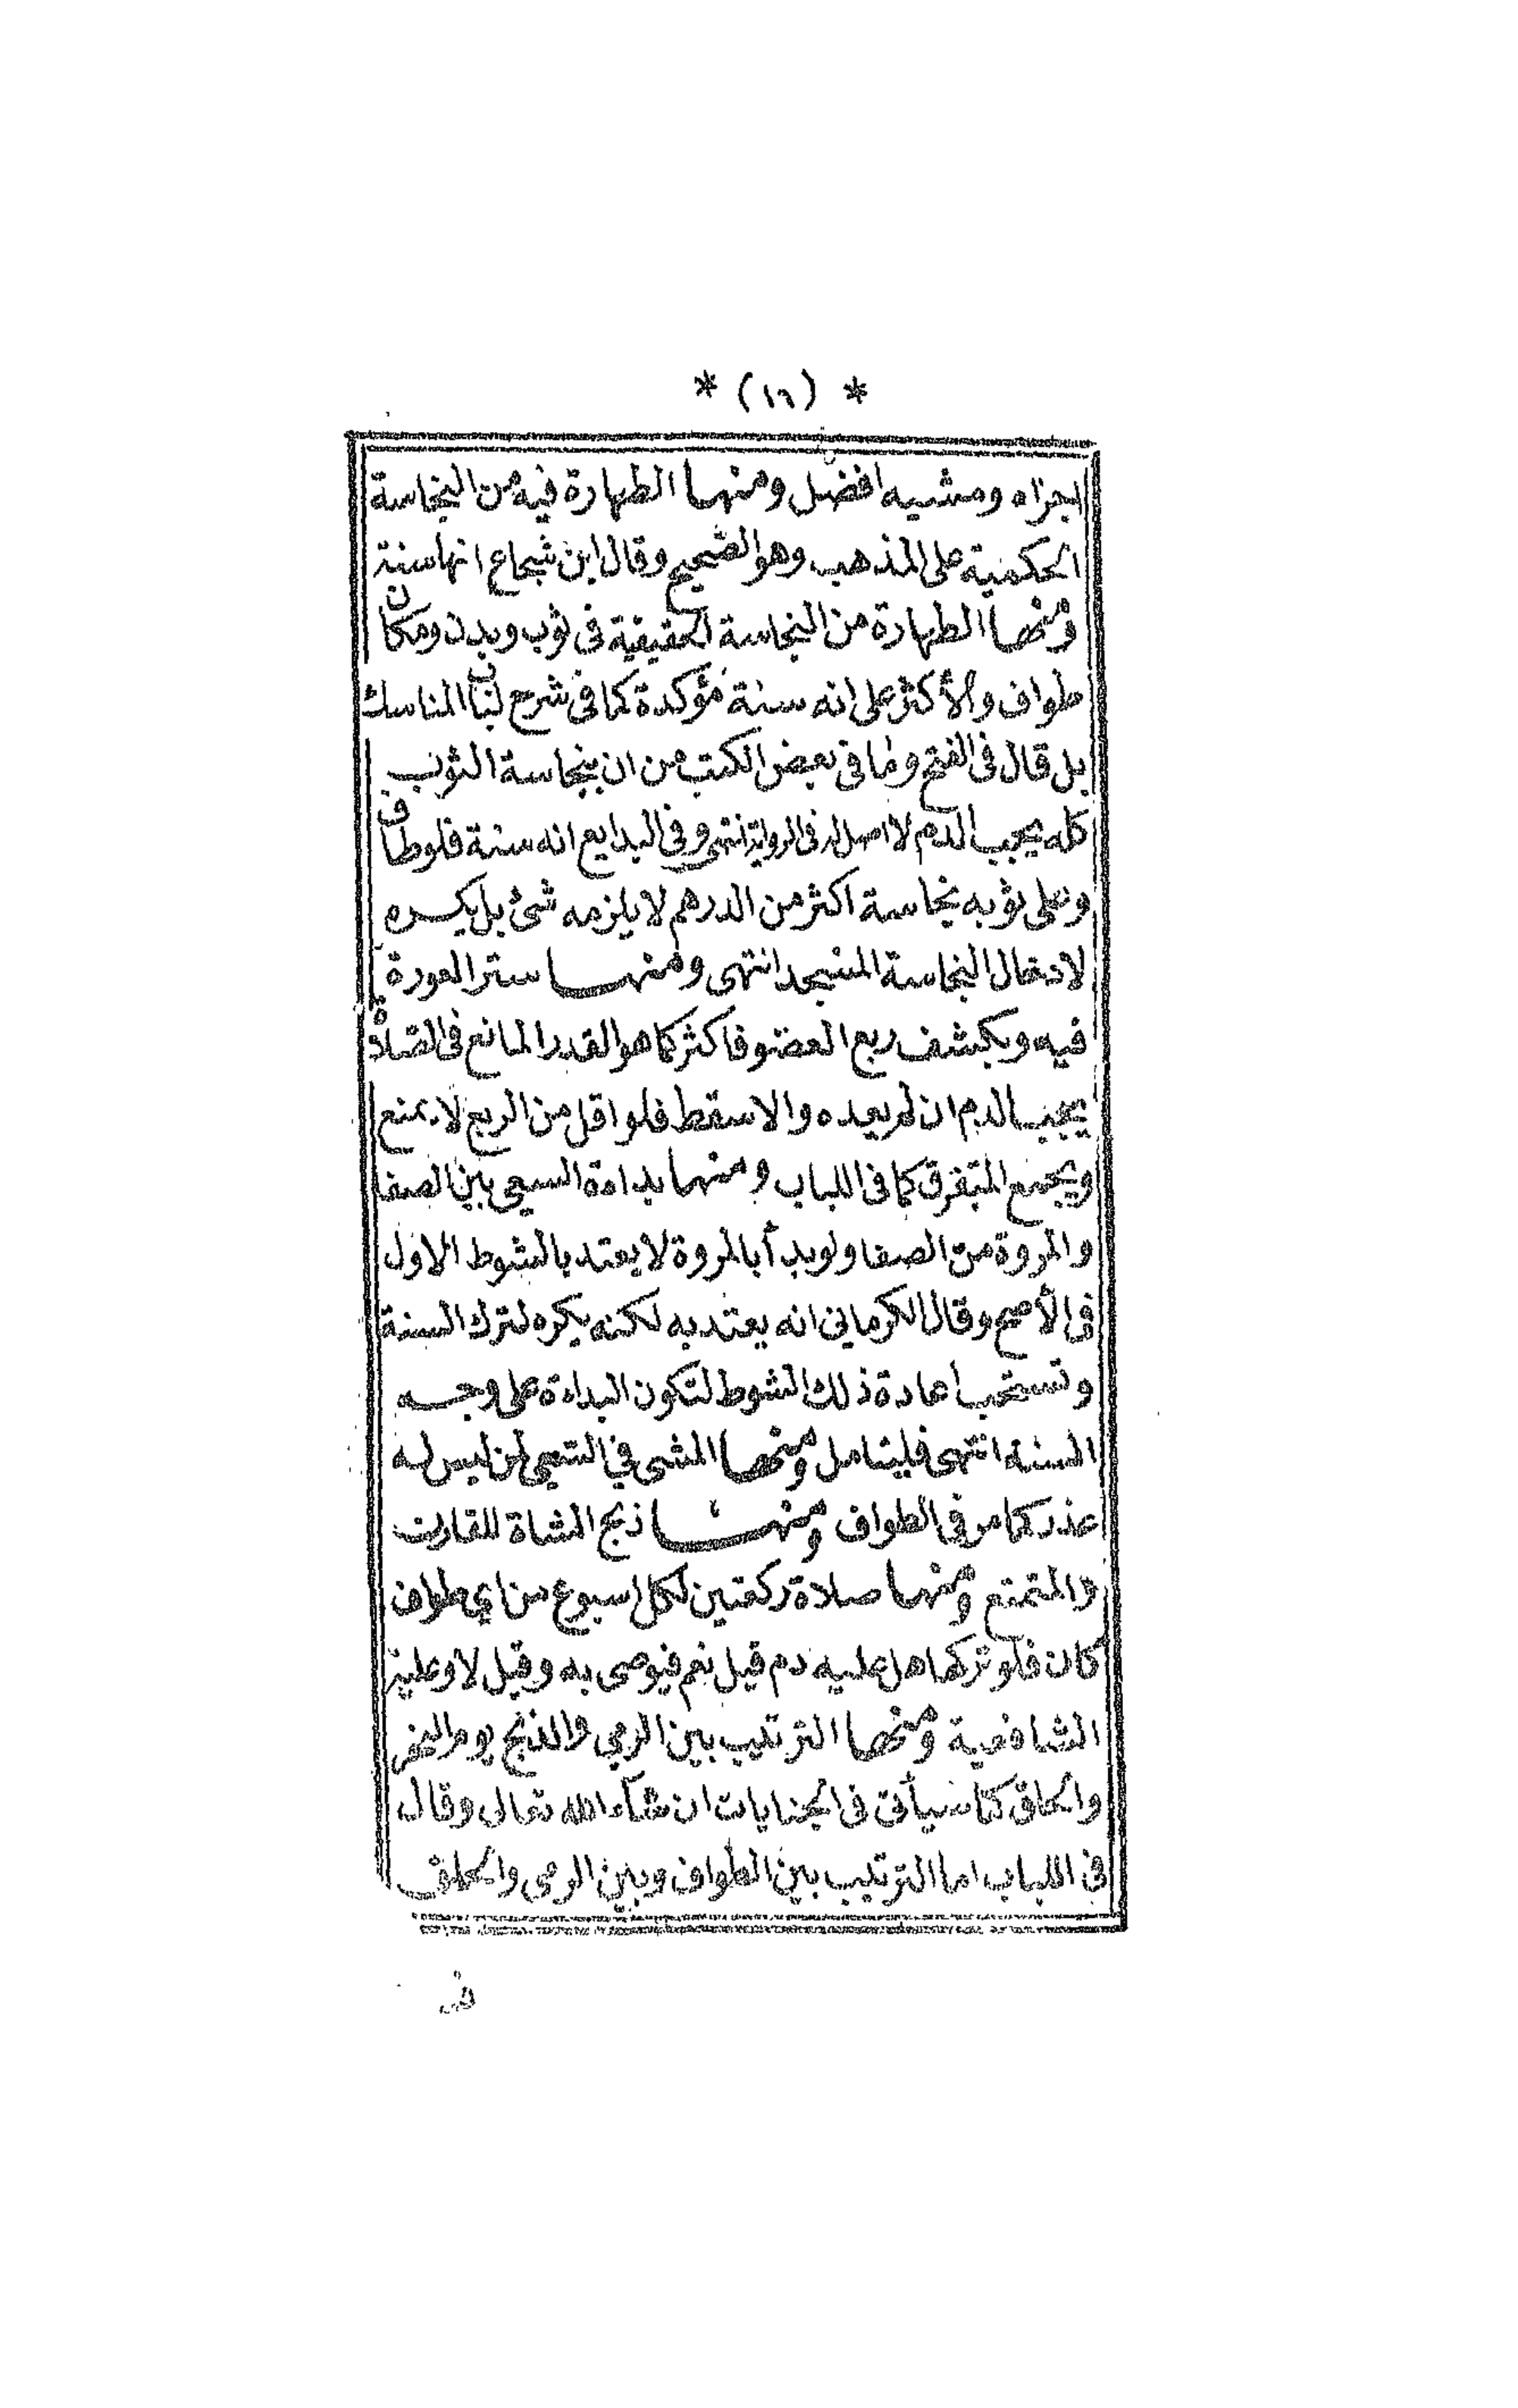 * (١٦) *
اجزاه ومشيه افضل ومنها الطهارة فيه من النجاسة
الحكمية على المذهب وهو الصحيح وقال ابن شجاع انها سنة
ومنها الطهارة من النجاسة الحقيقية فى ثوب وبدن ومكان
طواف والأكثر على انه سنة مؤكدة كما فى شرح لباب المناسك
بل قال فى الفتح وما فى بعض الكتب من ان بنجاسة الثوب
كله يجب الدم لا اصل له فى الرواية انتهى وفى البدايع انه سنة فلو طاف
وعلى ثوبه نجاسة اكثر من الدرهم لا يلزمه شئ بل يكره
لادخال النجاسة المسجد انتهى ومنها ستر العورة
فيه وبكشف ربع العضو فاكثر كما هو القدر المانع فى الصلاة
يجب الدم ان لم يعده والا سقط فلو اقل من الربع لا يمنع
ويجمع المتفرق كما فى اللباب ومنها بداءة السعى بين الصفا
والمروة من الصفا ولو بدأ بالمروة لا يعتد بالشوط الاول
فى الأصح وقال الكرمانى انه يعتد به لكنه يكره لترك السنة
وتستحب اعادة ذلك الشوط لتكون البداءة على وجه
السنة انتهى فليتامل ومنها المشى في السعى لمن ليس له
عذر كما مر فى الطواف ومنها ذبح الشاة للقارن
والمتمتع ومنها صلاة ركعتين لكل اسبوع من اي طواف
كان فلو تركها هل عليه دم قيل نعم فيوصى به وقيل لا وعليه
الشافعية ومنها الترتيب بين الرمي والذبح يوم النحر
والحلق كما سيأتى فى الجنايات ان شاء الله تعالى وقال
فى اللباب اما الترتيب بين الطواف وبين الرمى والحلق